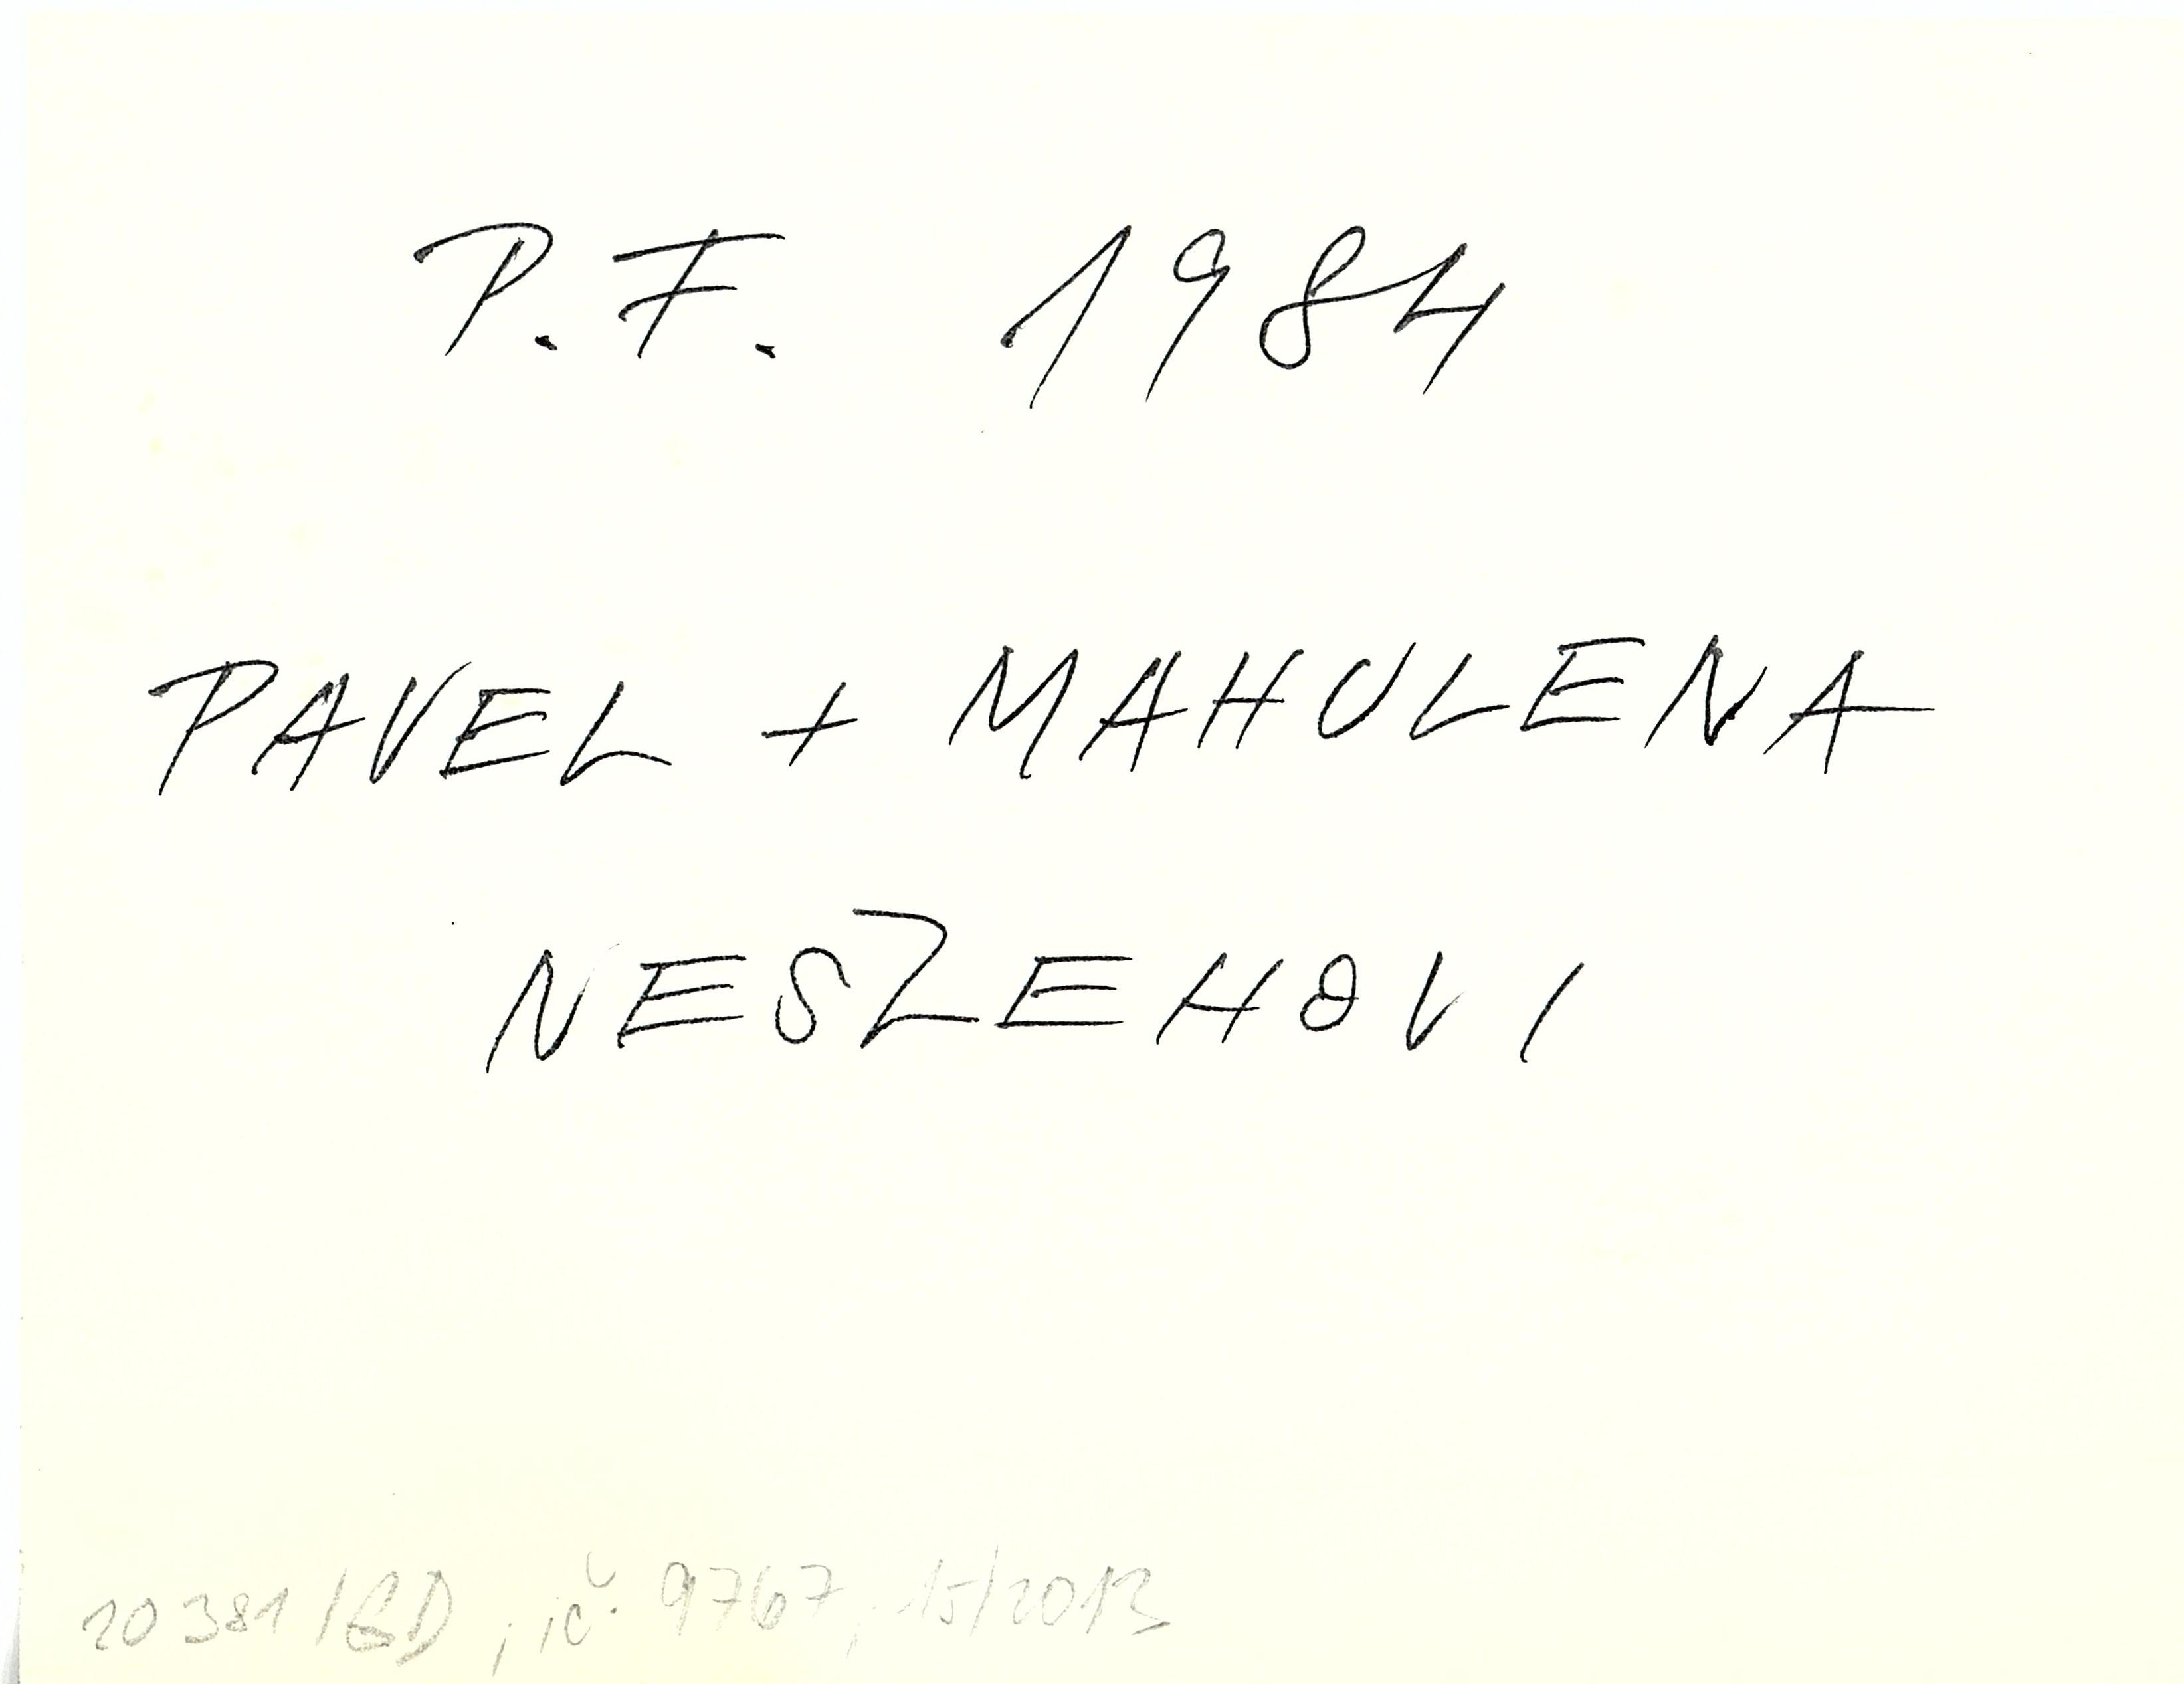 P.F. 1984
PAVEL + MAHULENA
NESZEHOVI
20381/GD, ič. 9767, 15/2013